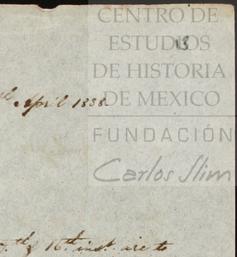 CENTRO DE
ESTUDIOS
DE HISTORIA
DE MEXICO
FUNDACIÓN
Carlos Slim
April 1838.
th & 16th inst. are to